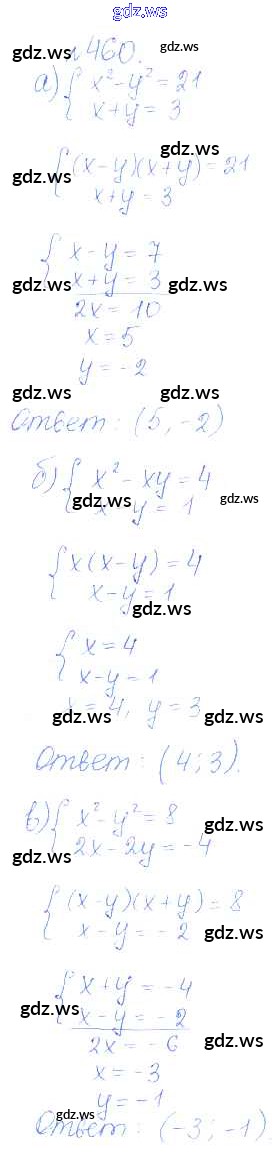 gdz.ws
gdz.ws №460. gdz.ws
а) { x² - y² = 21
x + y = 3
gdz.ws gdz.ws
{ (x - y)(x + y) = 21
x + y = 3
gdz.ws gdz.ws
{ x - y = 7
x + y = 3
gdz.ws gdz.ws
2x = 10
x = 5
y = -2
gdz.ws gdz.ws
Ответ: (5, -2)
б) { x² - xy = 4
x - y = 1
gdz.ws gdz.ws
{ x(x - y) = 4
x - y = 1
gdz.ws gdz.ws
{ x = 4
x - y = 1
x = 4, y = 3
gdz.ws gdz.ws
Ответ: (4; 3).
в) { x² - y² = 8
2x - 2y = -4
gdz.ws gdz.ws
{ (x - y)(x + y) = 8
x - y = -2
gdz.ws gdz.ws
{ x + y = -4
x - y = -2
gdz.ws gdz.ws
2x = -6
x = -3
y = -1
gdz.ws gdz.ws
Ответ: (-3; -1).